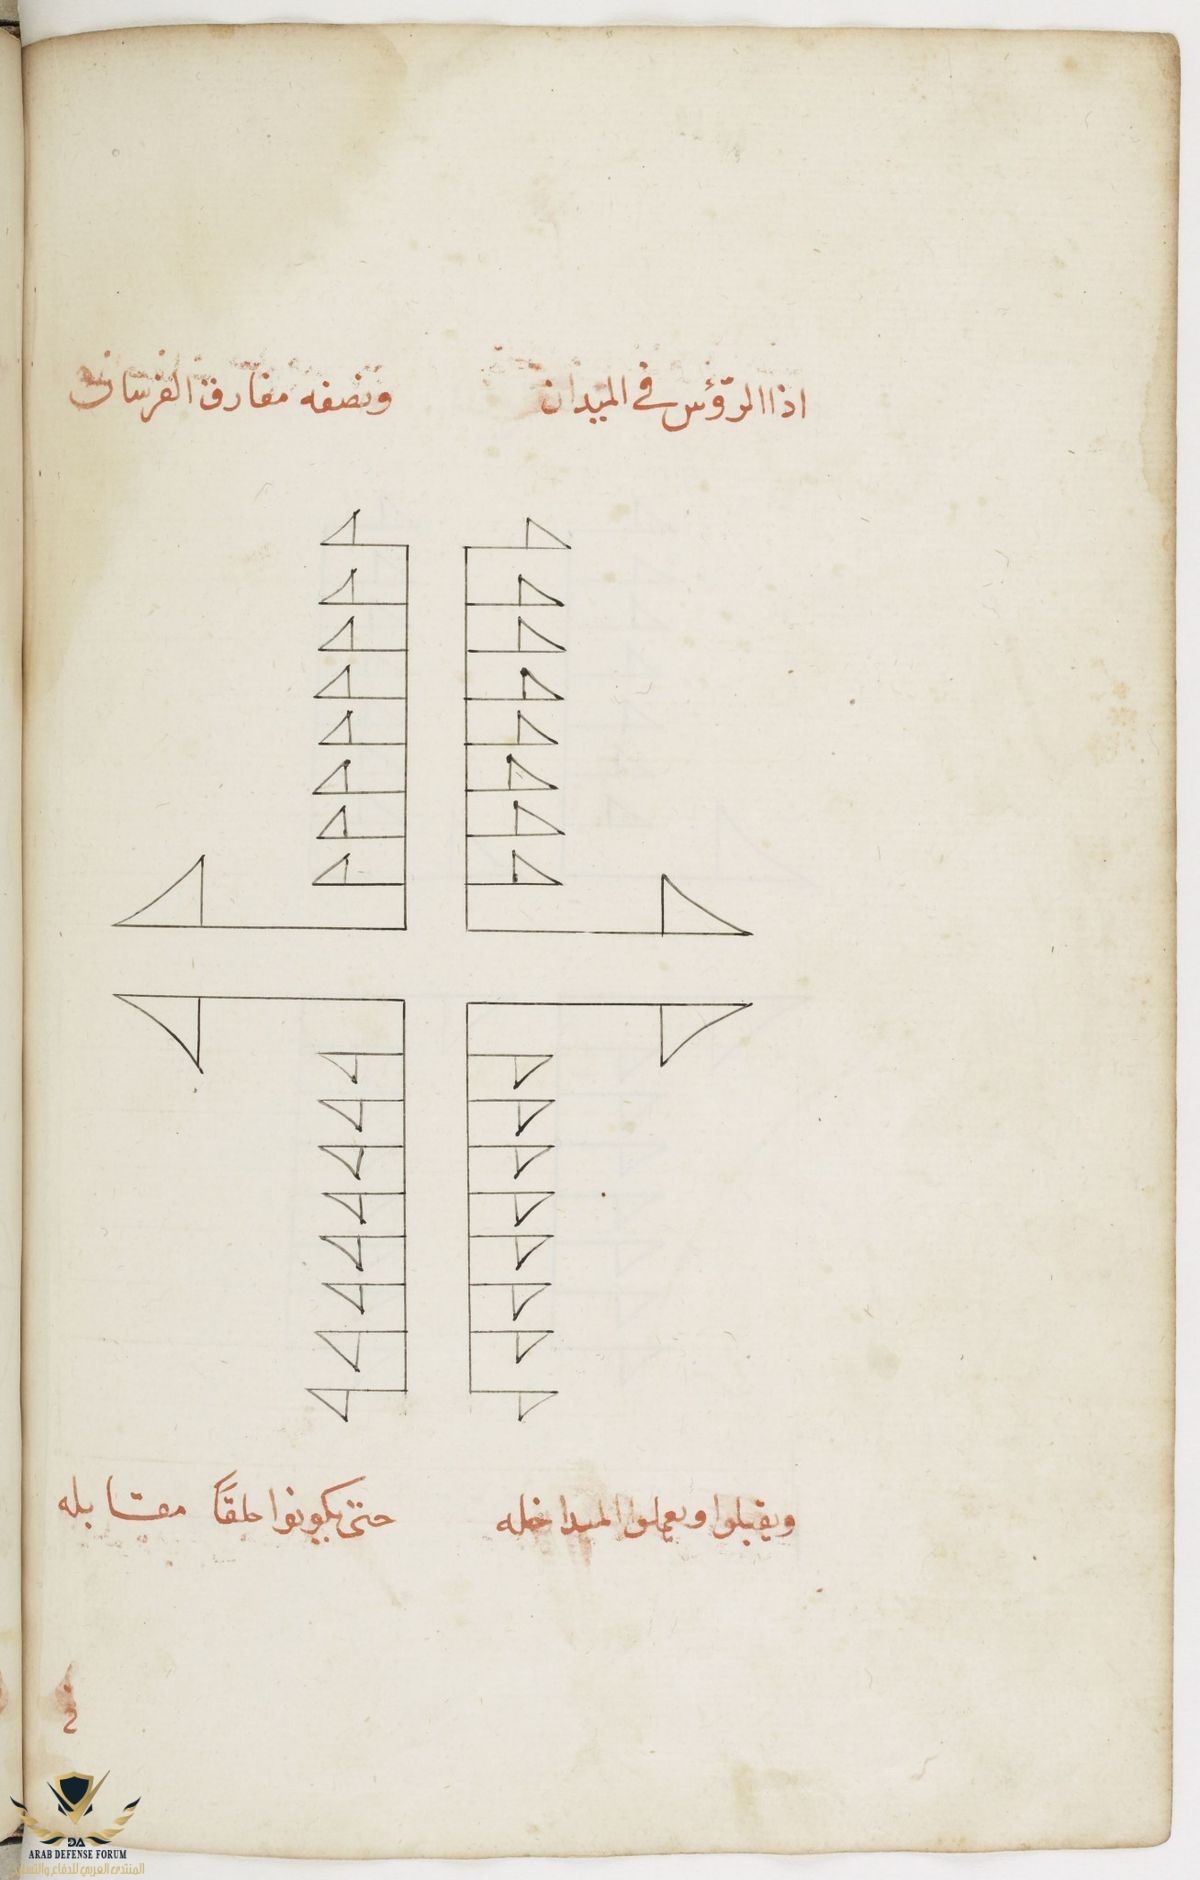 اذا الرؤس في الميدان    ونصفه مفارق الفرسان
ويقبلوا ويعملوا المداخله    حتى يكونوا حلقًا مقابله
ARAB DEFENSE FORUM
المنتدى العربي للدفاع والتسليح